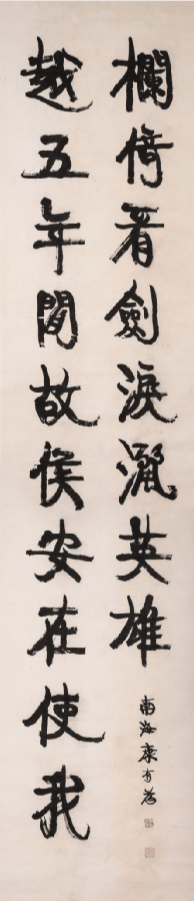 越五年間故侯安在使我
欄倚看劍淚灑英雄
南海康有為